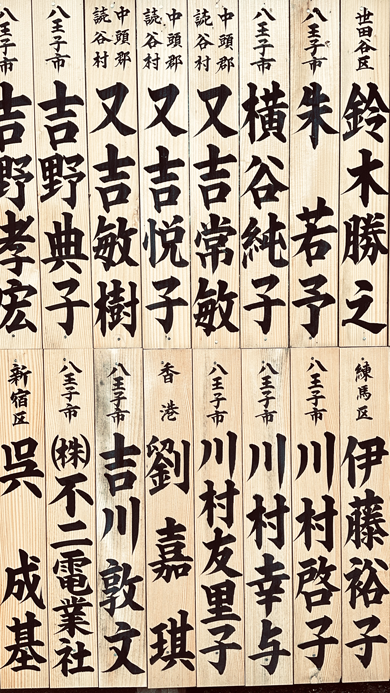 世田谷区 鈴木勝之
八王子市 朱若予
八王子市 横谷純子
中頭郡読谷村 又吉常敏
中頭郡読谷村 又吉悦子
中頭郡読谷村 又吉敏樹
八王子市 吉野典子
八王子市 吉野孝宏
練馬区 伊藤裕子
八王子市 川村啓子
八王子市 川村幸与
八王子市 川村友里子
香港 劉嘉琪
八王子市 吉川敦文
八王子市 ㈱不二電業社
新宿区 呉成基